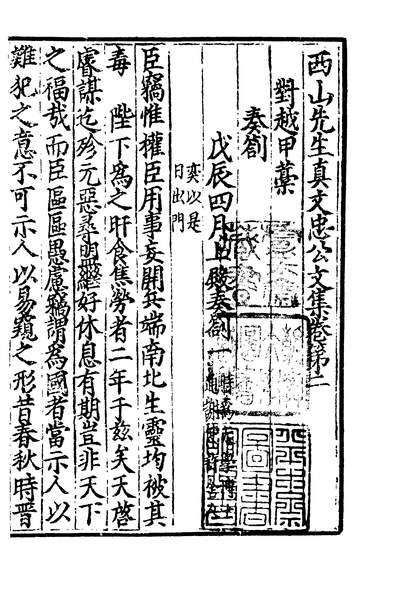 西山先生真文忠公文集卷第二
對越甲藁
奏劄
戊辰四月上殿奏劄一
時為太學博士
奕以是
日出門
臣竊惟權臣用事妄開兵端南北生靈均被其
毒　陛下為之旰食焦勞者二年于玆矣天啓
睿謀迄殄元惡尋盟繼好休息有期豈非天下
之福哉而臣區區愚慮竊謂為國者當示人以
難犯之意不可示人以易窺之形昔春秋時晉